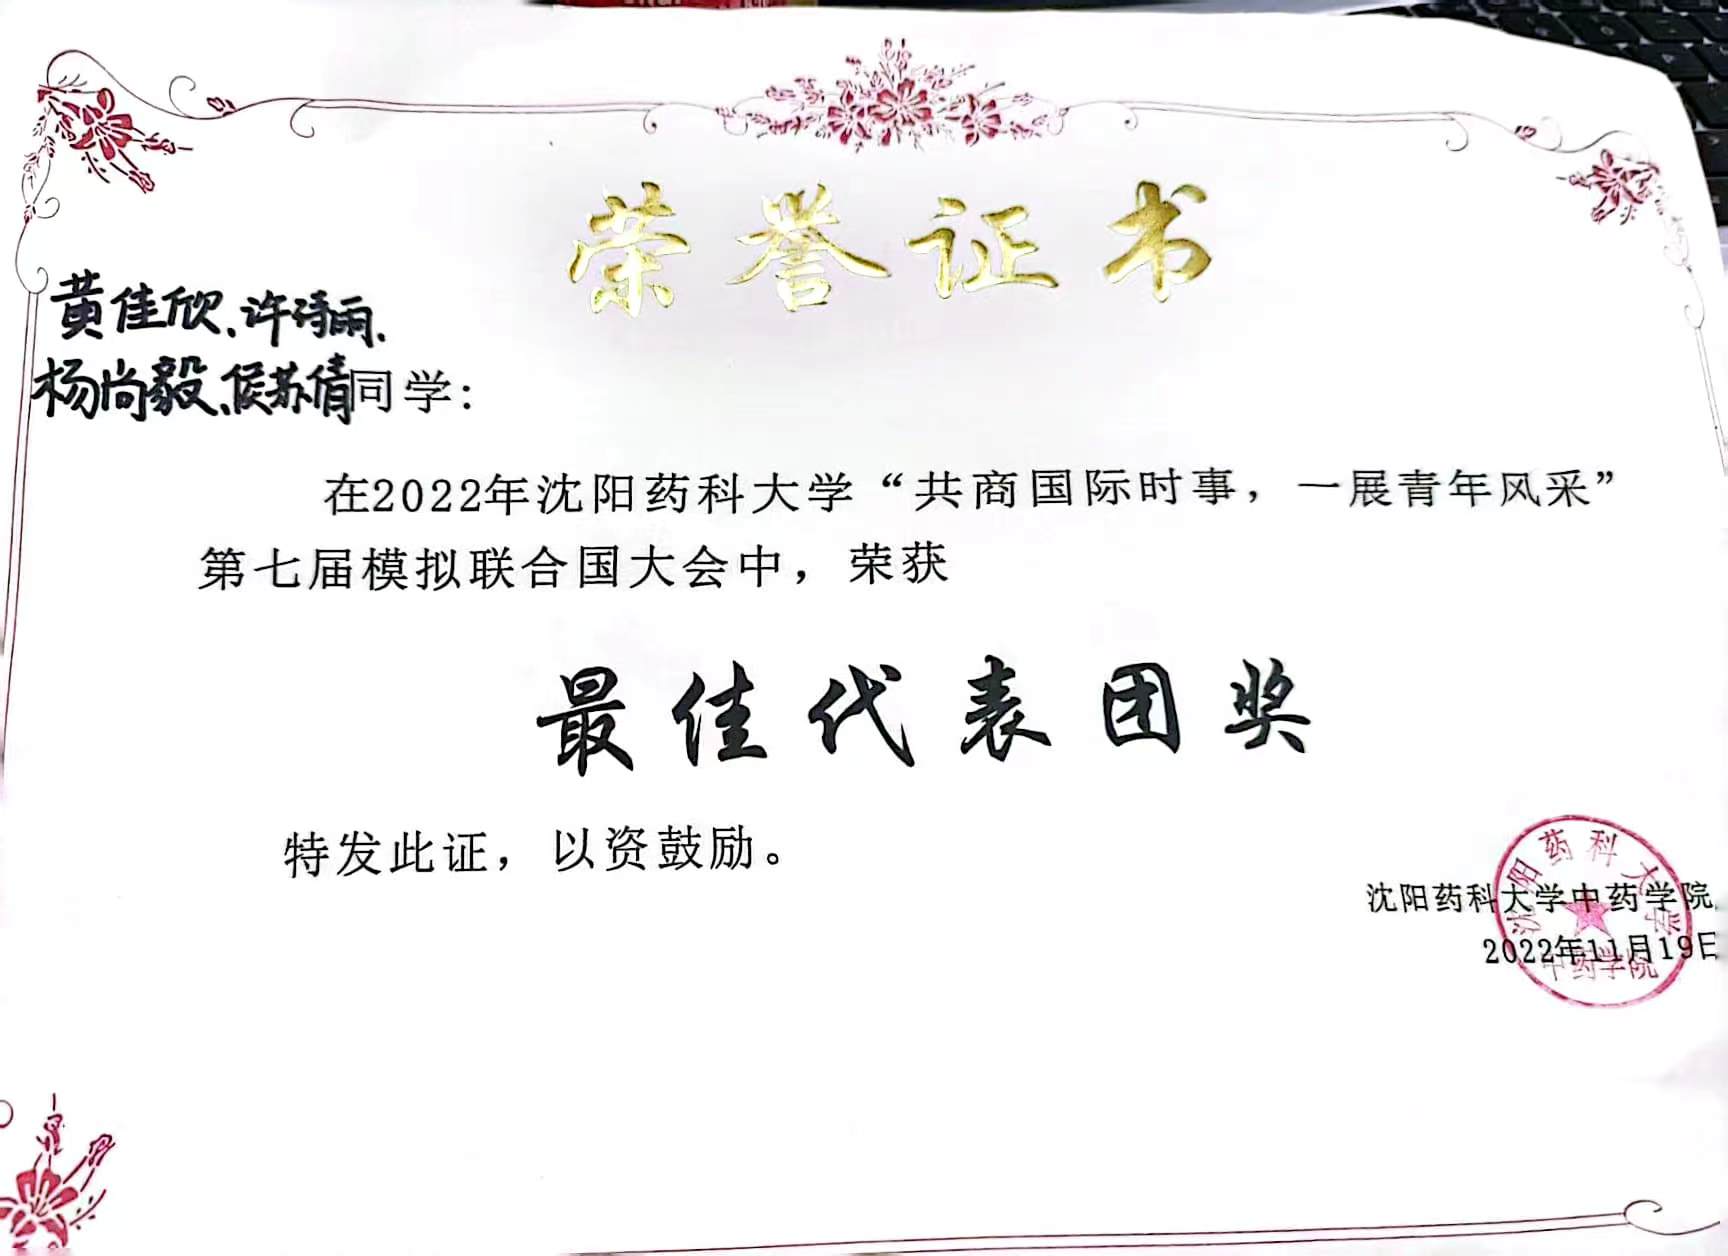 荣誉证书
黄佳欣、许诗雨、
杨尚毅、侯苏倩同学:
在2022年沈阳药科大学“共商国际时事，一展青年风采”
第七届模拟联合国大会中，荣获
最佳代表团奖
特发此证，以资鼓励。
沈阳药科大学中药学院
2022年11月19日
沈阳药科大学
中药学院